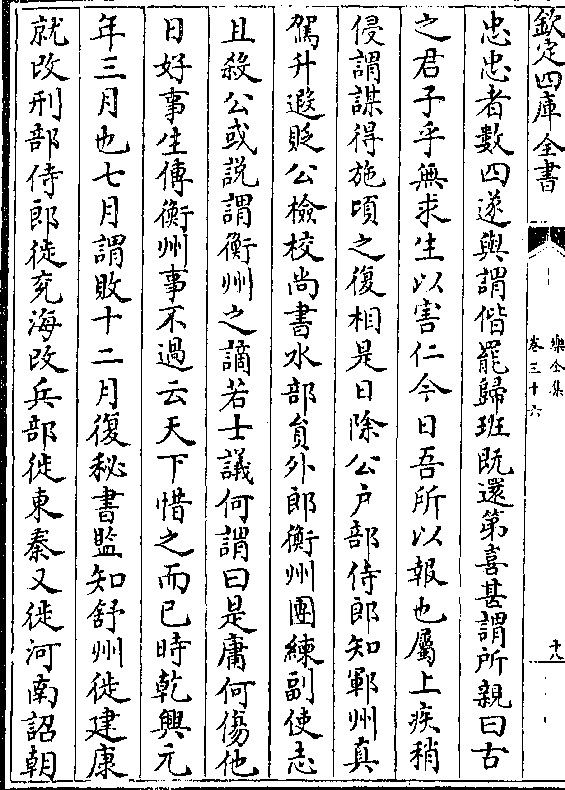 欽定四庫全書
樂全集
卷三十六
十八
忠忠者數四遂與謂偕罷歸班既還第喜甚謂所親曰古
之君子乎無求生以害仁今日吾所以報也屬上疾稍
侵謂謀得施頃之復相是日除公户部侍郎知鄆州真
駕升遐貶公檢校尚書水部員外郎衡州團練副使志
且殺公或説謂衡州之謫若士議何謂曰是庸何傷他
日好事生傳衡州事不過云天下惜之而已時乾興元
年三月也七月謂敗十二月復秘書監知舒州徙建康
就改刑部侍郎徙兖海改兵部徙東秦又徙河南詔朝